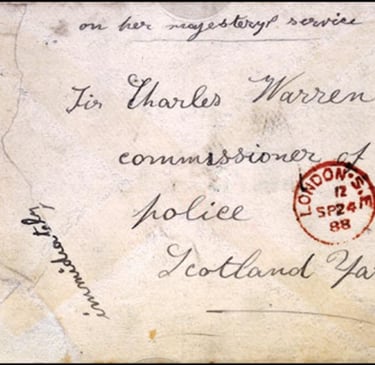 on her majesterys service
Sir Charles Warren
commissioner of
police
Scotland Ya
immidiatly
LONDON·S.E
12
SP24
88